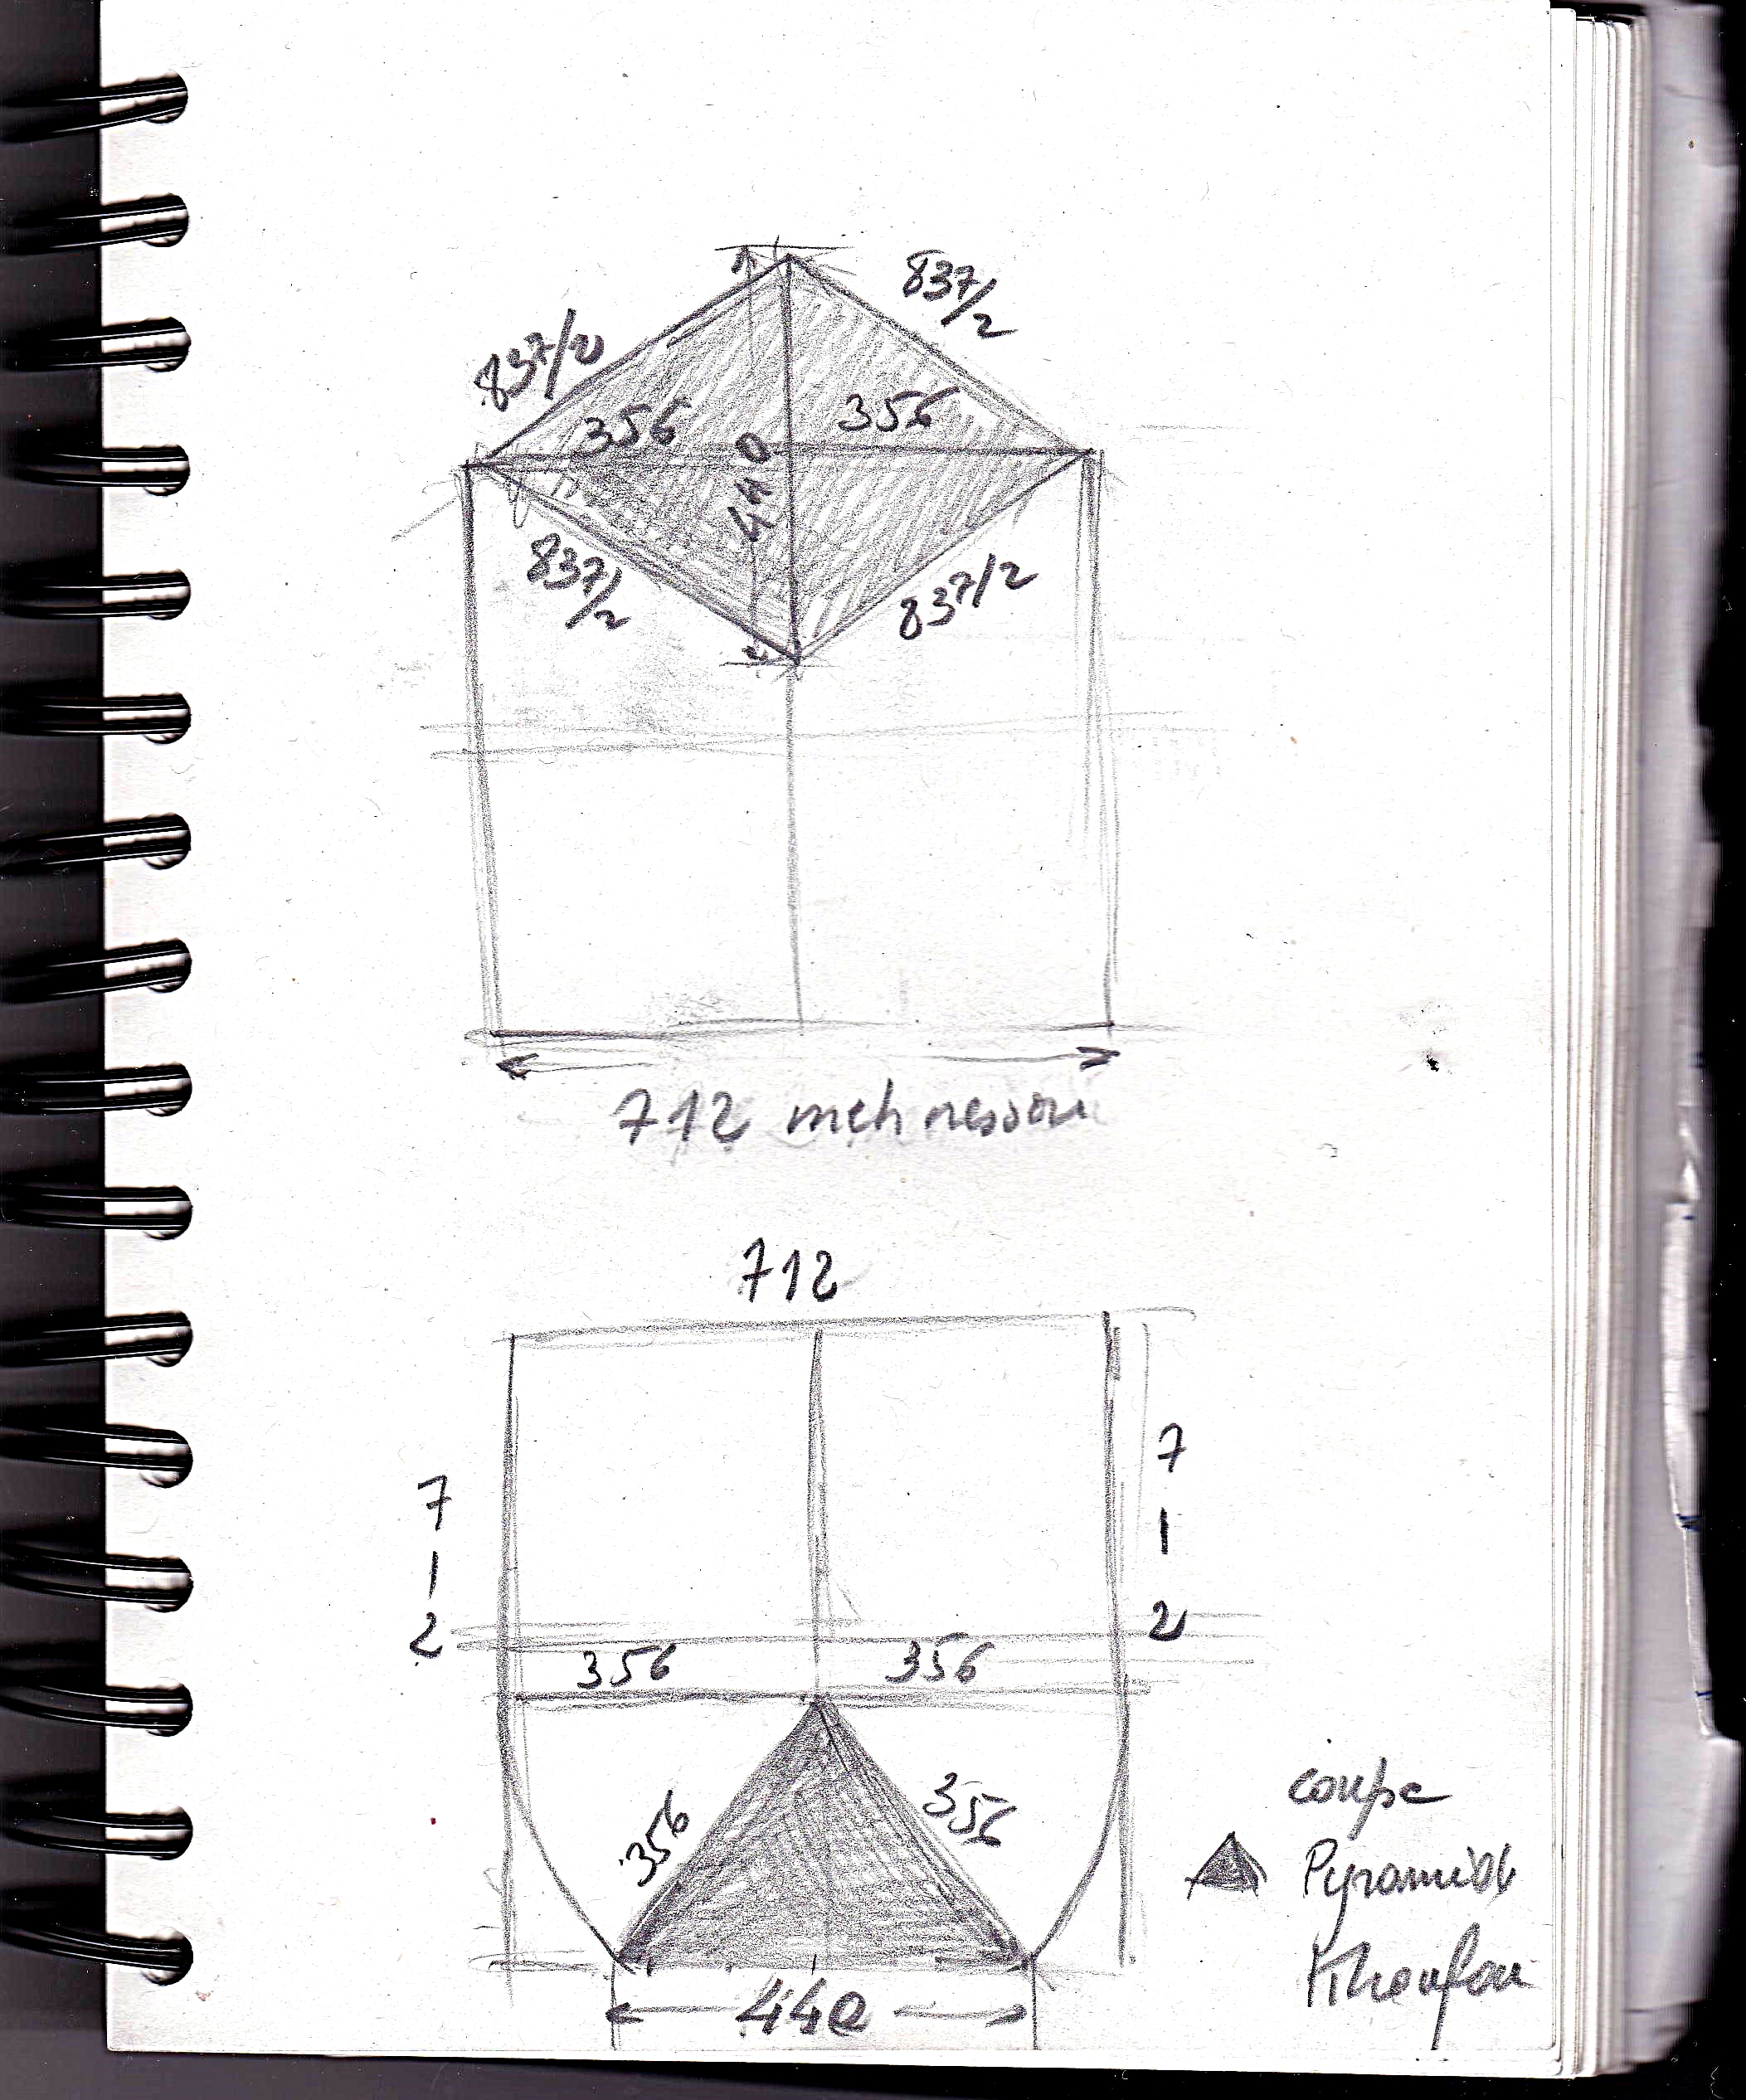 837/2
837/2
356
356
440
837/2
837/2
712 meh nessou
712
712
712
356
356
356
356
440
coupe
Pyramide
Khoufou